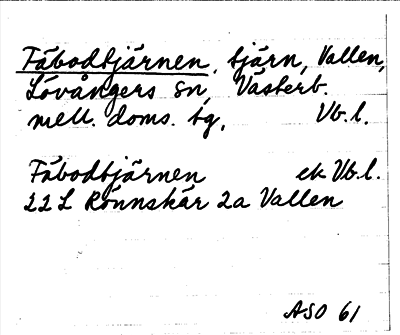 Fäbodtjärnen, tjärn, Vallen,
Lövångers sn, Västerb.
mell. doms. tg, Vb.l.
Fäbodtjärnen ek Vb.l.
22 L Rönnskär 2a Vallen
ASO 61